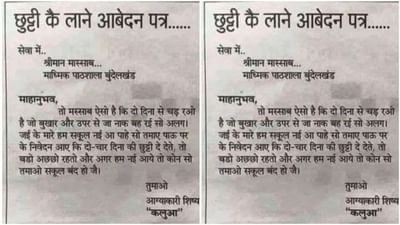 छुट्टी कै लाने आबेदन पत्र......
सेवा में..
श्रीमान मास्साब...
माध्मिक पाठशाला बुंदेलखंड
माहानुभव,
तो मस्साब ऐसो है कि दो दिना से चड़ रओ
है जो बुखार और उपर से जा नाक बह रई सो अलग।
जई के मारे हम सकूल नई आ पाहे सो तमाए पाऊ पर
के निवेदन आए कि दो-चार दिना की छुट्टी दे देते, तो
बडो अछछो रहतो और अगर हम नई आये तो कोन सो
तमाओ सकूल बंद हो जै।
तुमाओ
आग्याकारी शिष्य
"कलुआ"
छुट्टी कै लाने आबेदन पत्र......
सेवा में..
श्रीमान मास्साब...
माध्मिक पाठशाला बुंदेलखंड
माहानुभव,
तो मस्साब ऐसो है कि दो दिना से चड़ रओ
है जो बुखार और उपर से जा नाक बह रई सो अलग।
जई के मारे हम सकूल नई आ पाहे सो तमाए पाऊ पर
के निवेदन आए कि दो-चार दिना की छुट्टी दे देते, तो
बडो अछछो रहतो और अगर हम नई आये तो कोन सो
तमाओ सकूल बंद हो जै।
तुमाओ
आग्याकारी शिष्य
"कलुआ"